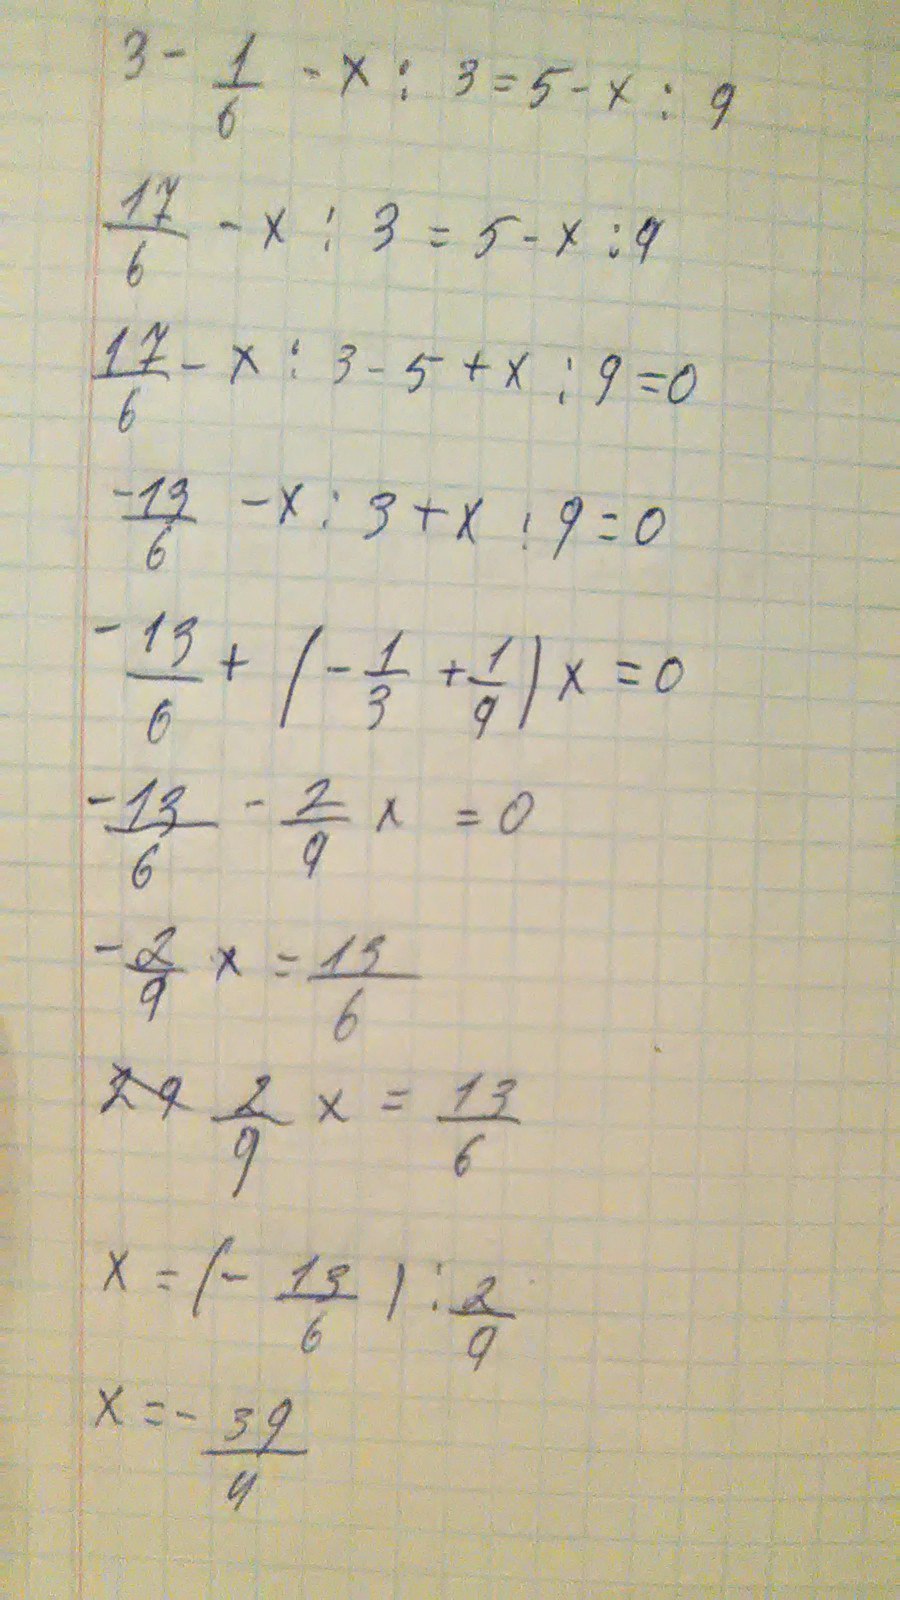 3 - 1/6 - x : 3 = 5 - x : 9
17/6 - x : 3 = 5 - x : 9
17/6 - x : 3 - 5 + x : 9 = 0
-13/6 - x : 3 + x : 9 = 0
-13/6 + (-1/3 + 1/9) x = 0
-13/6 - 2/9 x = 0
-2/9 x = 13/6
2/9 x = 13/6
x = (-13/6) : 2/9
x = -39/4